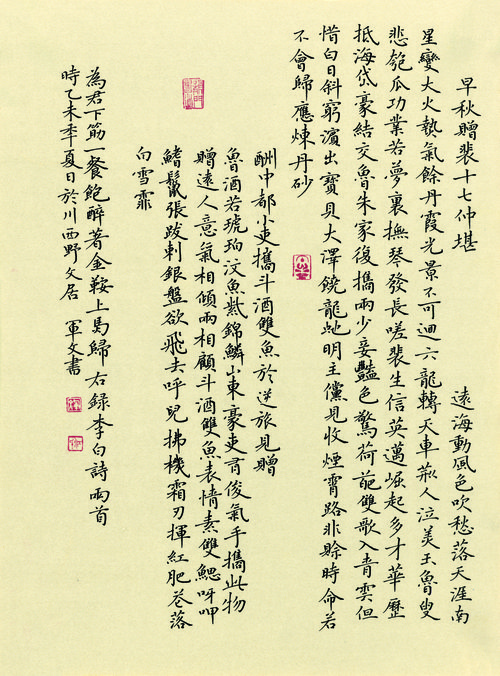 早秋贈裴十七仲堪 遠海動風色吹愁落天涯南
星變大火熱氣餘丹霞光景不可迴六龍轉天車荊人泣美玉魯叟
悲匏瓜功業若夢裏撫琴發長嗟裴生信英邁崛起多才華歷
抵海岱豪結交魯朱家復攜兩少妾豔色驚荷葩雙歌入青雲但
惜白日斜窮濱出寶貝大澤饒龍虵明主儻見收煙霄路非賒時命若
不會歸應煉丹砂
酬中都小吏攜斗酒雙魚於逆旅見贈
魯酒若琥珀汶魚紫錦鱗山東豪吏有俊氣手攜此物
贈遠人意氣相傾兩相顧斗酒雙魚表情素雙鰓呀呷
鰭鬣張跋刺銀盤欲飛去呼兒拂機霜刃揮紅肥花落
白雪霏
為君下筯一餐飽醉著金鞍上馬歸右錄李白詩兩首
時乙未秊夏日於川西野文居 軍文書